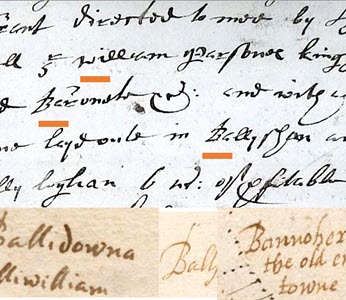 rant directed to mee by S
ll william Parsones king
Baronete &c: and with
layd oute in Ballyshan
lly loghan 6 ac: of profitable
Ballidowna
lliwilliam
Bally
Bannoher
the old
towne